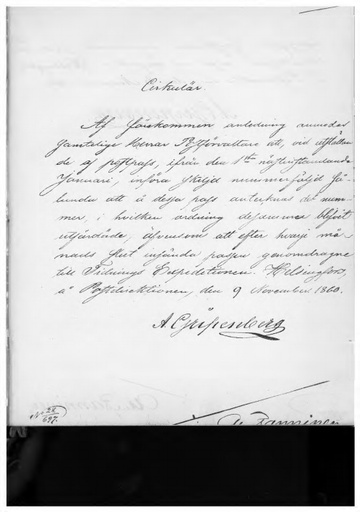 Cirkulär.
Af förekommen anledning anmodas
samtelige Herrar Postförvaltare att, vid utfärdan-
de af postpass, ifrån den 1sta nästinstundande
Januarii, införa skiljd nummerföljd så-
lunda att å dessa pass antecknas det num-
mer, i hvilken ordning desamma blifvit
utfärdade, äfvensom att efter hvarje må-
nads slut insända passen genomdragne
till Tidnings Expeditionen. Helsingfors,
å Postdirektionen, den 9 November 1860.
A Gripenberg
No 28
697.